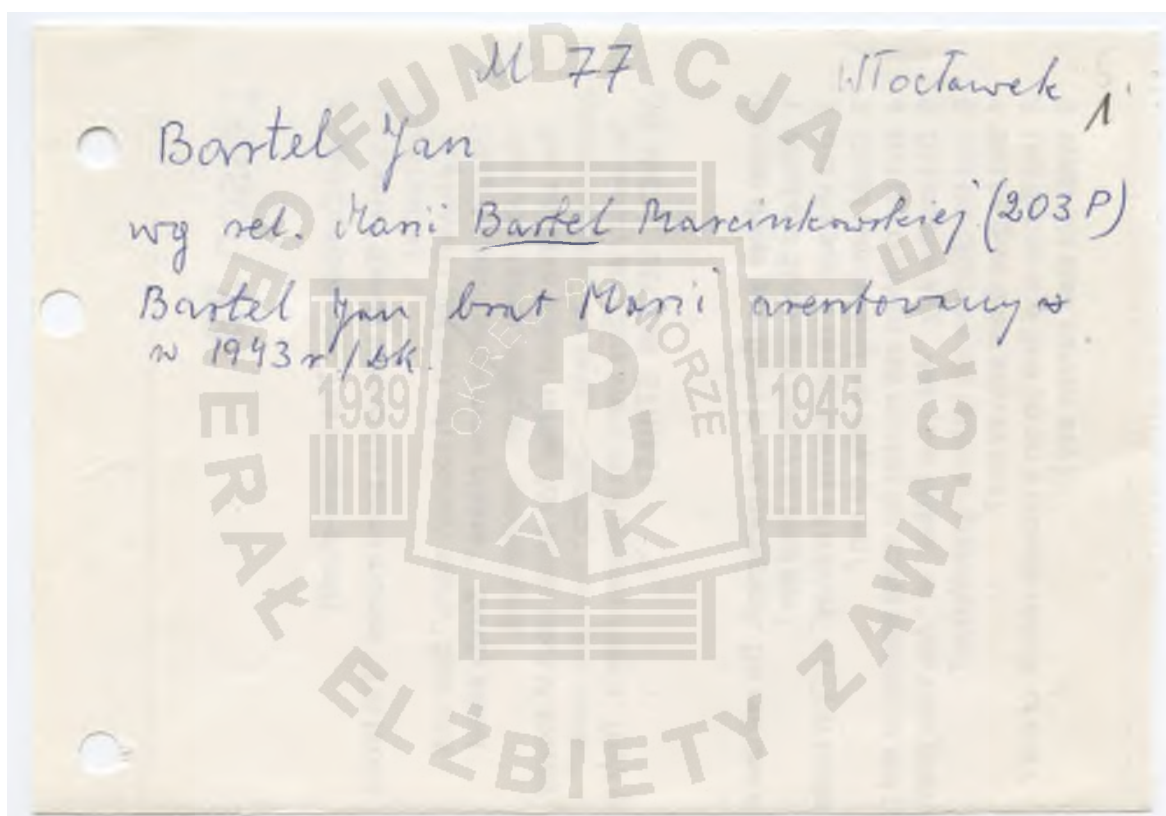 M 77 Włocławek
1
Bartel Jan
wg rel. Marii Bartel Marcinkowskiej (203 P)
Bartel Jan brat Marii arentowany
w 1943 r / AK.
FUNDACJA GENERAŁ ELŻBIETY ZAWACKIEJ
OKRĘG POMORZE
1939 1945
AK